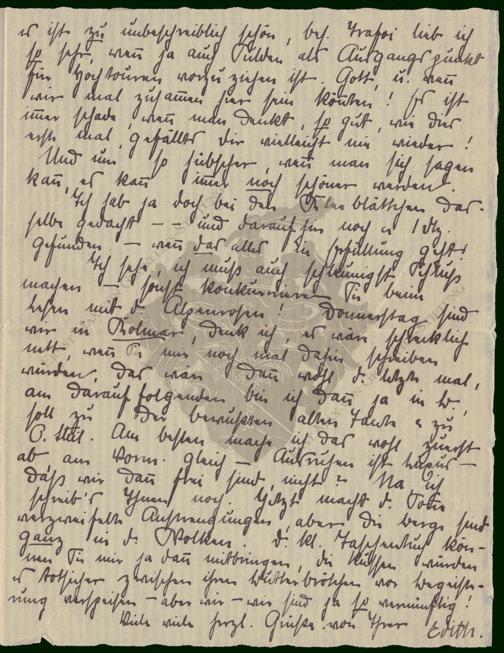 es ist zu unbeschreiblich schön, bes. Trafoi lieb ich
so sehr, wenn ja auch Sulden als Ausgangspunkt
für Hochtouren vorzuziehen ist. Gott, u. wenn
wir mal zusammen hier sein könnten! Es ist
immer schade, wenn man denkt, so gut, wie das
erste mal, gefällts dir vielleicht nie wieder!
Und um so hübscher, wenn man sich sagen
kann, es kann immer noch schöner werden.
Ich hab ja doch bei den blättchen das-
selbe gedacht -- und daraufhin noch 1 dtz.
gefunden - wenn das alles in Erfüllung geht!
Ich sehe, ich muß auch schleunigst Schluß
machen - sonst konkurrieren Sie beim
lesen mit d. Alpenrosen! Donnerstag sind
wir in Kolmar, denk ich, es wär schrecklich
nett, wenn Sie mir noch mal dahin schreiben
würden, das wär dann wohl d. letzte mal,
am darauf folgenden bin ich dann ja in
soll zu der bewußten alten Tante zu
Am besten mache ich das wohl zuerst
ab am Vorm. gleich - Ausruhen ist Luxus -
daß wir dann frei sind, nicht? Na ich
schreib's Ihnen noch. Jetzt macht d. Sonne
verzweifelte Anstrengungen, aber die Berge sind
ganz in d. Wolken. D. kl. Taschentuch kön-
nen Sie mir ja dann mitbringen, die würden
es totsicher zwischen ihren Butterbrötchen vor Begeiste-
rung verspeisen - aber wir - wir sind ja so vernünftig!
Viele viele herzl. Grüße von Ihrer Edith.